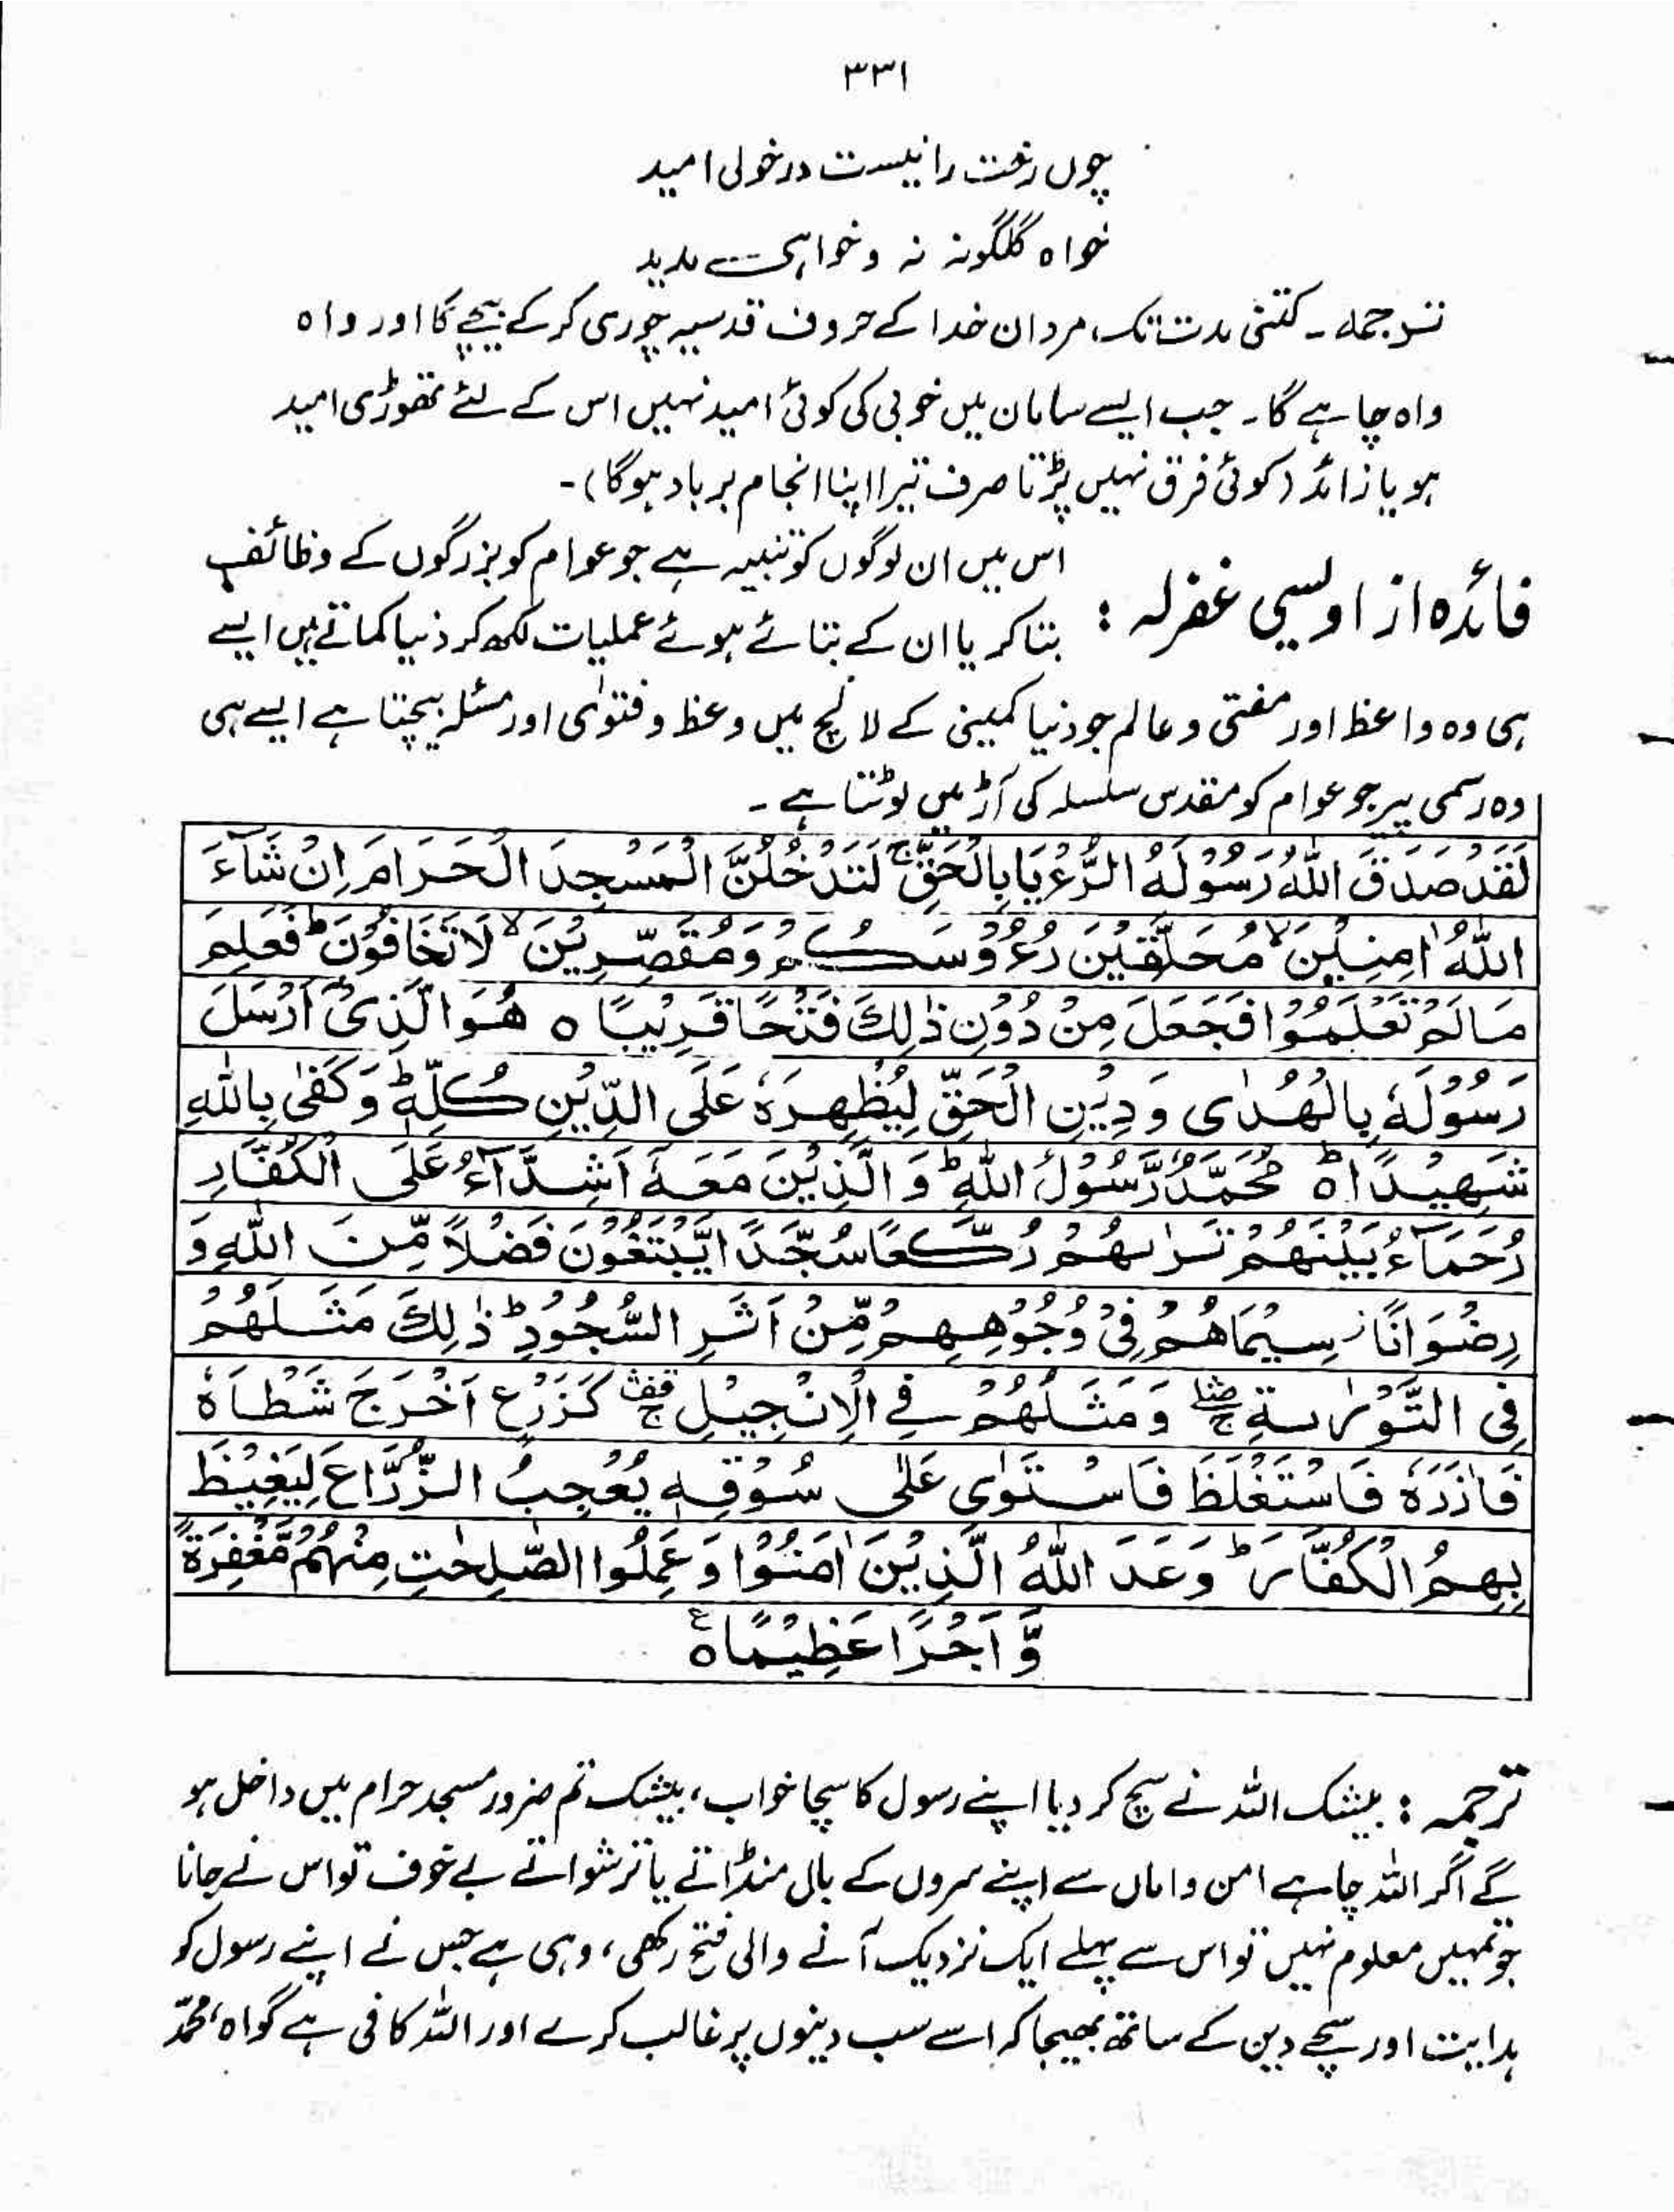 ۳۳۱
چوں رخت را نیست در خولی امید
خواہ گلگونہ نہ و خواہی مدید
ترجمہ ۔ کتنی مدت تک مردان خدا کے حروف قدسیہ چوری کر کے بیچے گا اور واہ
واہ چاہے گا ۔ جب ایسے سامان میں خوبی کی کوئی امید نہیں اس کے لئے تھوڑی امید
ہو یا زائد (کوئی فرق نہیں پڑتا صرف تیرا اپنا انجام برباد ہوگا) ۔
اس میں ان لوگوں کو تنبیہ ہے جو عوام کو بزرگوں کے وظائف
فائدہ از اویسی غفرلہ :
بتا کر یا ان کے بتائے ہوئے عملیات لکھ کر دنیا کماتے ہیں ایسے
ہی وہ واعظ اور مفتی و عالم جو دنیا کمینی کے لالچ میں وعظ و فتویٰ اور مسئلہ بیچتا ہے ایسے ہی
وہ رسمی پیر جو عوام کو مقدس سلسلہ کی آڑ میں لوٹتا ہے ۔
لَقَدْ صَدَقَ اللّٰهُ رَسُوْلَهُ الرُّءْيَا بِالْحَقِّ ۚ لَتَدْخُلُنَّ الْمَسْجِدَ الْحَرَامَ اِنْ شَآءَ
اللّٰهُ اٰمِنِيْنَ ۙ مُحَلِّقِيْنَ رُءُوْسَكُمْ وَمُقَصِّرِيْنَ ۙ لَا تَخَافُوْنَ ؕ فَعَلِمَ
مَا لَمْ تَعْلَمُوْا فَجَعَلَ مِنْ دُوْنِ ذٰلِكَ فَتْحًا قَرِيْبًا ه هُوَ الَّذِیْۤ اَرْسَلَ
رَسُوْلَهٗ بِالْهُدٰى وَدِيْنِ الْحَقِّ لِيُظْهِرَهٗ عَلَى الدِّيْنِ كُلِّهٖ ؕ وَكَفٰى بِاللّٰهِ
شَهِيْدًا ه ؕ مُحَمَّدٌ رَّسُوْلُ اللّٰهِ ؕ وَالَّذِيْنَ مَعَهٗۤ اَشِدَّآءُ عَلَى الْكُفَّارِ
رُحَمَآءُ بَيْنَهُمْ تَرٰىهُمْ رُكَّعًا سُجَّدًا يَّبْتَغُوْنَ فَضْلًا مِّنَ اللّٰهِ وَ
رِضْوَانًا ز سِيْمَاهُمْ فِيْ وُجُوْهِهِمْ مِّنْ اَثَرِ السُّجُوْدِ ؕ ذٰلِكَ مَثَلُهُمْ
فِى التَّوْرٰىةِ ۛۚ وَمَثَلُهُمْ فِي الْاِنْجِيْلِ ۛۚ كَزَرْعٍ اَخْرَجَ شَطْاَهٗ
فَاٰزَرَهٗ فَاسْتَغْلَظَ فَاسْتَوٰى عَلٰى سُوْقِهٖ يُعْجِبُ الزُّرَّاعَ لِيَغِيْظَ
بِهِمُ الْكُفَّارَ ؕ وَعَدَ اللّٰهُ الَّذِيْنَ اٰمَنُوْا وَعَمِلُوا الصّٰلِحٰتِ مِنْهُمْ مَّغْفِرَةً
وَّاَجْرًا عَظِيْمًا ه ع
ترجمہ : بیشک اللہ نے سچ کر دیا اپنے رسول کا سچا خواب، بیشک تم ضرور مسجد حرام میں داخل ہو
گے اگر اللہ چاہے امن و اماں سے اپنے سروں کے بال منڈاتے یا ترشواتے بے خوف تو اس نے جانا
جو تمہیں معلوم نہیں تو اس سے پہلے ایک نزدیک آنے والی فتح رکھی، وہی ہے جس نے اپنے رسول کو
ہدایت اور سچے دین کے ساتھ بھیجا کہ اسے سب دینوں پر غالب کرے اور اللہ کافی ہے گواہ، محمّد